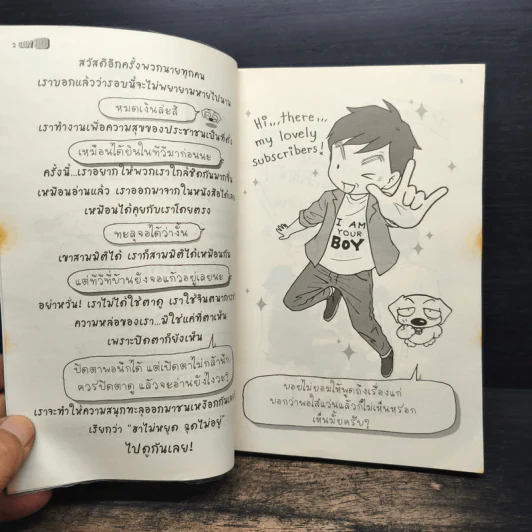 สวัสดีอีกครั้งพวกนายทุกคน
เราบอกแล้วว่ารอบนี้จะไม่พยายามหายไปนาน
หมดเงินล่ะสิ
เราทำงานเพื่อความสุขของประชาชนเป็นที่ตั้ง
เหมือนได้ยินในทีวีมาก่อนนะ
ครั้งนี้...เราอยากให้พวกเราใกล้ชิดกันมากขึ้น
เหมือนอ่านแล้ว เราออกมาจากในหนังสือได้เลย
เหมือนได้คุยกับเราโดยตรง
ทะลุจอได้ว่างั้น
เขาสามมิติได้ เราก็สามมิติได้เหมือนกัน
แต่ทีวีที่บ้านยังจอแก้วอยู่เลยนะ
อย่าหวั่น! เราไม่ได้ใช้ตาดู เราใช้จินตนาการ
ความหล่อของเรา...มิใช่แค่ที่ตาเห็น
เพราะปิดตาก็ยังเห็น
ปิดตาพอนึกได้ แต่เปิดตาไม่กล้า
ควรปิดตาดู แล้วจะอ่านยังไงวะ?
เราจะทำให้ความสนุกทะลุออกมาชนเหงือกกันเลย
เรียกว่า "ฮาไม่หยุด ฉุดไม่อยู่"
ไปดูกันเลย!
Hi,,,there,,,
my lovely
subscribers!
I AM
YOUR
BOY
บอยไม่ยอมให้พูดถึงเรื่องแก่
บอกว่าพอใส่แว่นแล้วก็ไม่เห็นหรอก
เห็นมั้ยครับ?